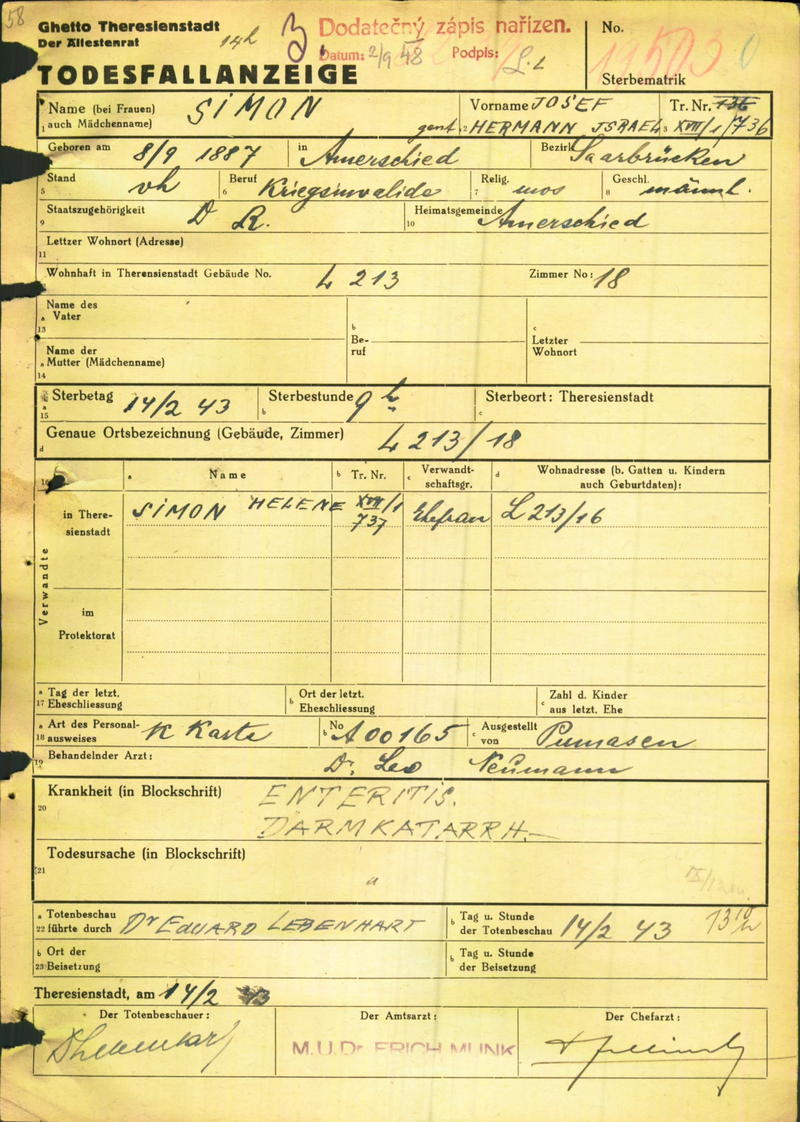 58
Ghetto Theresienstadt
Der Ältestenrat
14h
Dodatečný zápis nařízen.
Datum: 2/9 48 Podpis:
TODESFALLANZEIGE
No.
Sterbematrik
1 Name (bei Frauen) auch Mädchenname) SIMON
2 Vorname JOSEF gent HERMANN ISRAEL
3 Tr. Nr. 736 XVIII/1/736
Geboren am 8/9 1887 in Amerschied Bezirk Saarbrücken
5 Stand vh
6 Beruf Kriegsinvalide
7 Relig. mos
8 Geschl. männl.
9 Staatszugehörigkeit D R.
10 Heimatsgemeinde Amerschied
11 Lettzer Wohnort (Adresse)
Wohnhaft in Therensienstadt Gebäude No. L 213 Zimmer No: 18
13 a Name des Vater
b Beruf
c Letzter Wohnort
14 a Name der Mutter (Mädchenname)
15 a Sterbetag 14/2 43
b Sterbestunde 9 h
c Sterbeort: Theresienstadt
d Genaue Ortsbezeichnung (Gebäude, Zimmer) L 213/18
16 a Name
b Tr. Nr.
c Verwandtschaftsgr.
d Wohnadresse (b. Gatten u. Kindern auch Geburtdaten):
Verwandte
in Theresienstadt
SIMON HELENE XVIII/1 737 Ehefrau L 213/16
im Protektorat
17 a Tag der letzt. Eheschliessung
b Ort der letzt. Eheschliessung
c Zahl d. Kinder aus letzt. Ehe
18 a Art des Personalausweises K Karte
b No A00165
c Ausgestellt von Pirmasen
19 Behandelnder Arzt: Dr. Leo Neumann
20 Krankheit (in Blockschrift) ENTERITIS.
DARMKATARRH.
21 Todesursache (in Blockschrift)
"
22 a Totenbeschau führte durch Dr EDUARD LEBENHART
b Tag u. Stunde der Totenbeschau 14/2 43 13 10 h
23 b Ort der Beisetzung
b Tag u. Stunde der Beisetzung
Theresienstadt, am 14/2 43
Der Totenbeschauer:
Der Amtsarzt:
Der Chefarzt:
M.U.Dr. ERICH MUNK